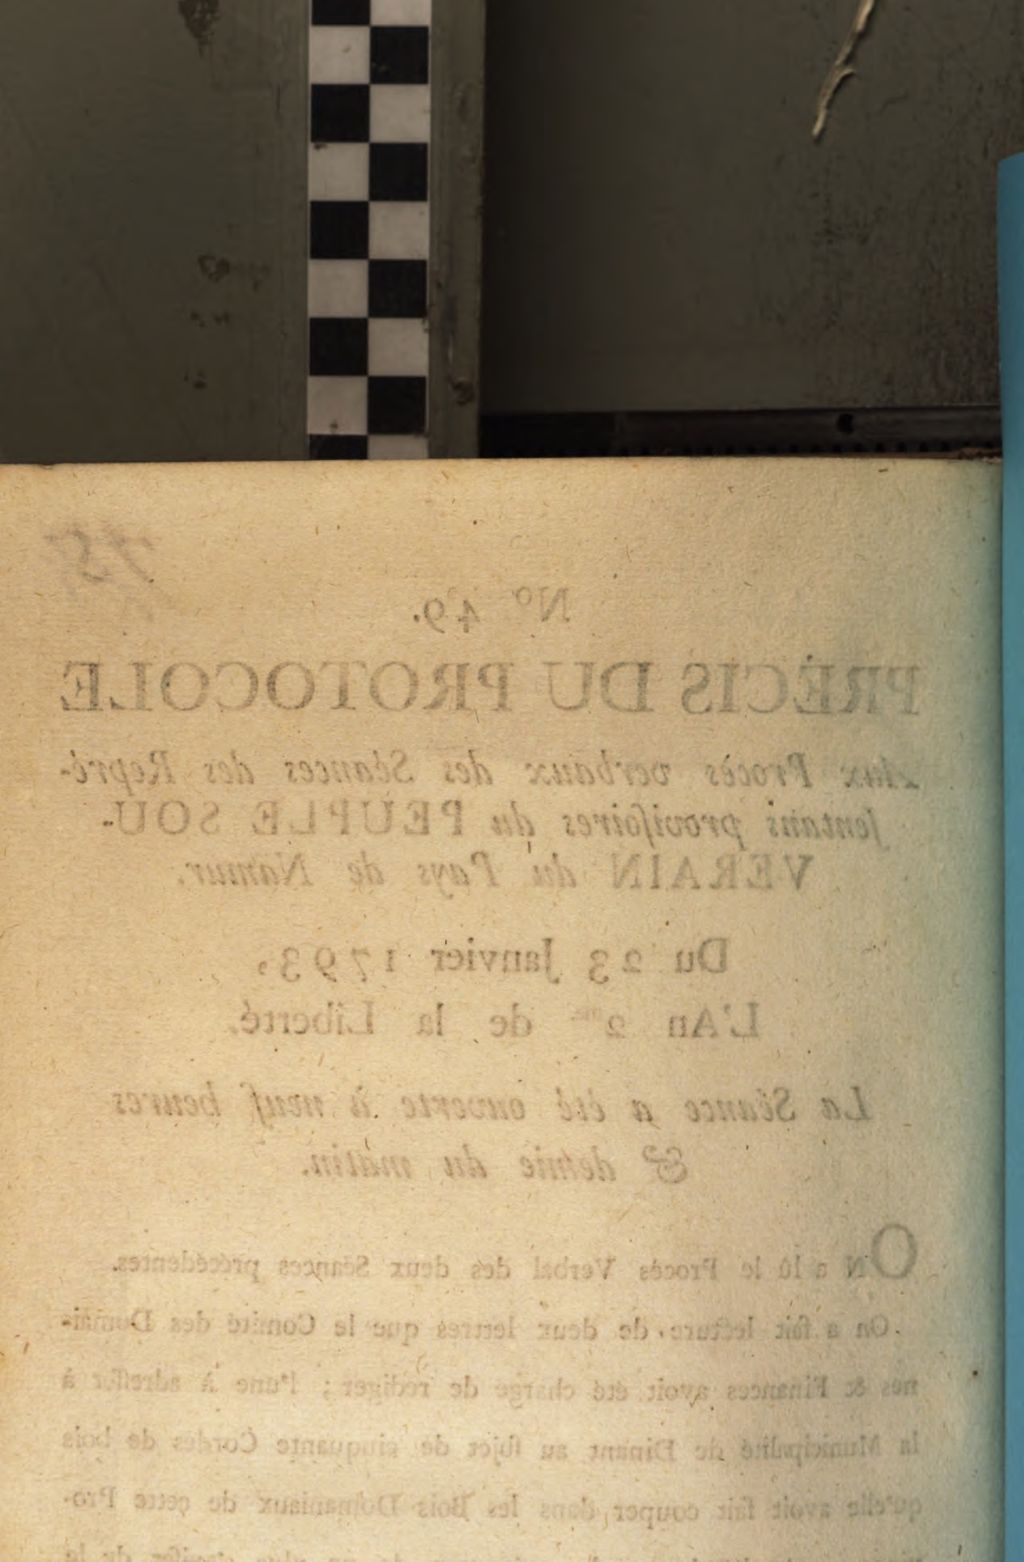 75
N° 49.
PRÉCIS DU PROTOCOLE
Aux Procès verbaux des Séances des Repré-
sentans provisoires du PEUPLE SOU-
VERAIN du Pays de Namur.
Du 23 Janvier 1793,
L'An 2me de la Liberté.
La Séance a été ouverte à neuf heures
& demie du matin.
ON a lû le Procès Verbal des deux Séances précédentes.
On a fait lecture de deux lettres que le Comité des Domai-
nes & Finances avoit été chargé de rédiger ; l'une à adresser à
la Municipalité de Dinant au sujet de cinquante Cordes de bois
qu'elle avoit fait couper dans les Bois Domaniaux de cette Pro-